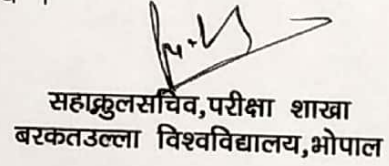 सहाकुलसचिव,परीक्षा शाखा
बरकतउल्ला विश्वविद्यालय,भोपाल